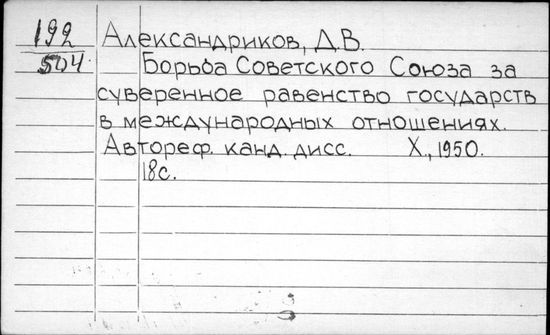 192
504
Александриков, Д.В.
Борьба Советского Союза за
суверенное равенство государств
в международных отношениях.
Автореф. канд. дисс. Х., 1950.
18с.